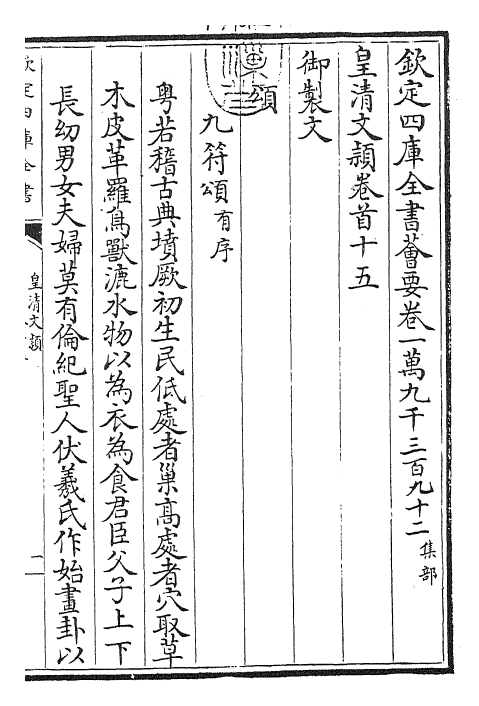 欽定四庫全書薈要卷一萬九千三百九十二集部
皇清文穎卷首十五
御製文
頌
九符頌有序
粤若稽古典墳厥初生民低處者巢高處者穴取草
木皮革羅鳥獸漉水物以為衣為食君臣父子上下
長幼男女夫婦莫有倫紀聖人伏羲氏作始畫卦以
欽定四庫全書
皇清文穎
一